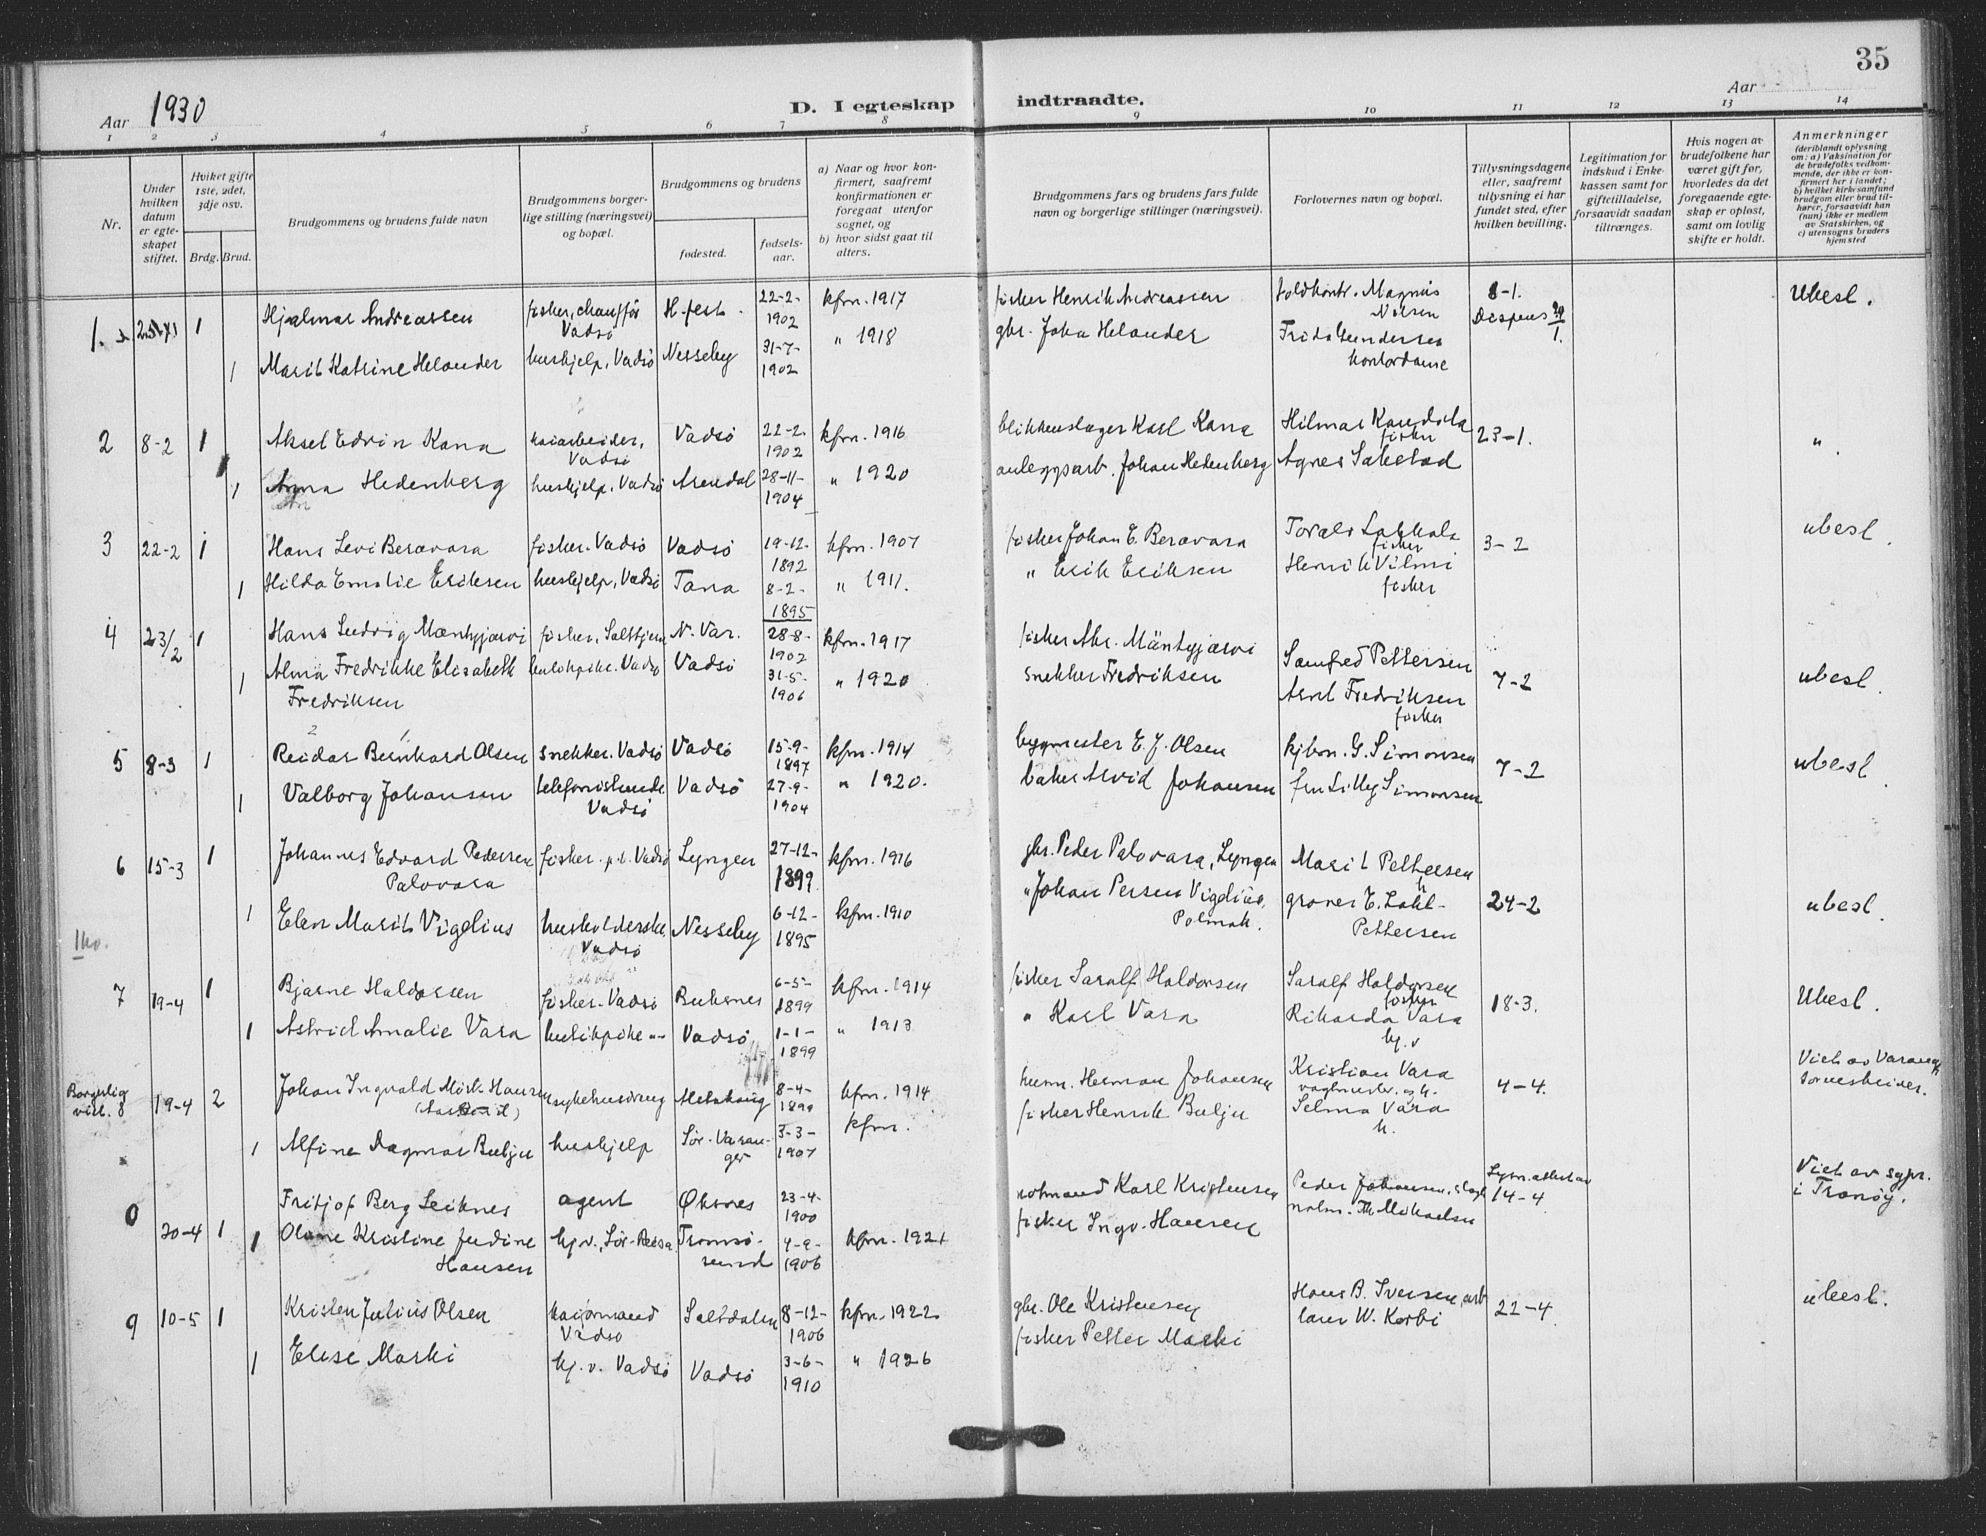 35
Aar 1930
D. I egteskap indtraadte.
Aar
1 2 3 4 5 6 7 8 9 10 11 12 13 14
Nr.
Under hvilken datum er egteskapet stiftet.
Hviket gifte 1ste, 2det, 3dje osv.
Brdg. Brud.
Brudgommens og brudens fulde navn
Brudgommens borgerlige stilling (næringsvei) og bopæl.
Brudgommens og brudens
fødested.
fødselsaar.
a) Naar og hvor konfirmert, saafremt konfirmationen er foregaat utenfor sognet, og
b) hvor sidst gaat til alters.
Brudgommens fars og brudens fars fulde navn og borgerlige stillinger (næringsvei).
Forlovernes navn og bopæl.
Tillysningsdagene eller, saafremt tillysning ei har fundet sted, efter hvilken bevilling.
Legitimation for indskud i Enkekassen samt for giftetilladelse, forsaavidt saadan tiltrænges.
Hvis nogen av brudefolkene har været gift før, hvorledes da det foregaaende egteskap er opløst, samt om lovlig skifte er holdt.
Anmerkninger
(deriblandt oplysning om: a) Vaksination for de brudefolks vedkommende, der ikke er konfirmert her i landet; b) hvilket kirkesamfund brudgom eller brud tilhører, forsaavidt han (hun) ikke er medlem av Statskirken, og c) utensogns bruders hjemsted
1. 1 Hjalmar Andreassen fisker, chauffør Vadsø H.fest. 22-2-1902 kfrn. 1917 fisker Henrik Andreassen Magnus Nilsen 8-1. Ubesl.
1 Marit Katrine Helander hushjelp, Vadsø Nesseby 31-7-1902 " 1918 gbr. Johan Helander Frida Gundersen kontordame Dispens 29/1.
2 8-2 1 Aksel Edvin Kana kaiarbeider, Vadsø Vadsø 22-2-1902 kfrn. 1916 blikkenslager Karl Kana Hilmar fisker 23-1. "
1 Anna Hedenberg hushjelp, Vadsø Arendal 28-11-1904 " 1920 anleggsarb. Johan Hedenberg Agnes
3 22-2 1 Hans Levi Beravara fisker. Vadsø Vadsø 19-12-1892 kfrn. 1907 fisker Johan E. Beravara fisker 3-2 ubesl.
1 Hilda Emelie Eriksen hushjelp, Vadsø Tana 8-2-1895 " 1911. " Erik Eriksen Henrik Vilmi fisker
4 23/2 1 Hans Ludvig Mäntyjærvi fisker, Saltfjern N. Var. 28-8-1902 kfrn. 1917 fisker Abr. Mäntyjærvi Samfred Pettersen 7-2 ubesl.
1 Alma Fredrikke Elisabeth Fredriksen Vadsø Vadsø 31-5-1906 " 1920 snekker Fredriksen Fredriksen fisker
5 8-3 1 Reidar Bernhard Olsen snekker. Vadsø Vadsø 15-9-1897 kfrn. 1914 bygmester E. J. Olsen G. Simonsen 7-2 ubesl.
1 Valborg Johansen telefonistinde Vadsø Vadsø 27-9-1904 " 1920. baker Arvid Johansen fru Lilly Simonsen
6 15-3 1 Johannes Edvard Pedersen Palovara fisker. p.t. Vadsø Lyngen 27-12-1899 kfrn. 1916 gbr. Peder Palovara, Lyngen Marit Pettersen 24-2 ubesl.
1 Elen Marit Vigelius husholderske Vadsø Nesseby 6-12-1895 kfrn. 1910 " Johan Persen Vigelius, Polmak. graver E. Pettersen
7 19-4 1 Bjarne Haldorsen fisker. Vadsø 6-5-1899 kfrn. 1914 fisker Saralf Haldorsen Saralf Haldorsen fisker 18-3. Ubesl.
1 Astrid Amalie Vara Vadsø 1-1-1899 " 1913 " Karl Vara Rikarda Vara hj.v
Borgerlig viel. 8 19-4 2 Johan Ingvald Mørk-Hansen sykehusdreng Alstahaug 8-4-1899 kfrn. 1914 Herman Johansen Kristian Vara 4-4. Viet av Varanger sorenskriver.
1 Alfine Dagmar Bulju hushjelp Sør-Varanger 3-3-1907 kfrn. fisker Henrik Bulju Selma Vara h.
0 20-4 1 Fritjof Berg Leiknes agent Øksnes 23-4-1900 Karl Kristensen Peder Johansen, 14-4 Viet av sgpr. i Tranøy.
1 Oline Kristine Judine Hansen hj.v., Sør-Reisa Tromsøsund 4-9-1906 kfrn. 1921 fisker Ingv. Hansen Th. Mikaelsen
9 10-5 1 Kristen Julius Olsen kaiformand Vadsø Saltdalen 8-12-1906 kfrn. 1922 gbr. Ole Kristensen Hans B. Iversen, arb 22-4 ubesl.
1 Elise Marki hj.v. Vadsø Vadsø 3-6-1910 " 1926 fisker Petter Marki lærer W. Korbi